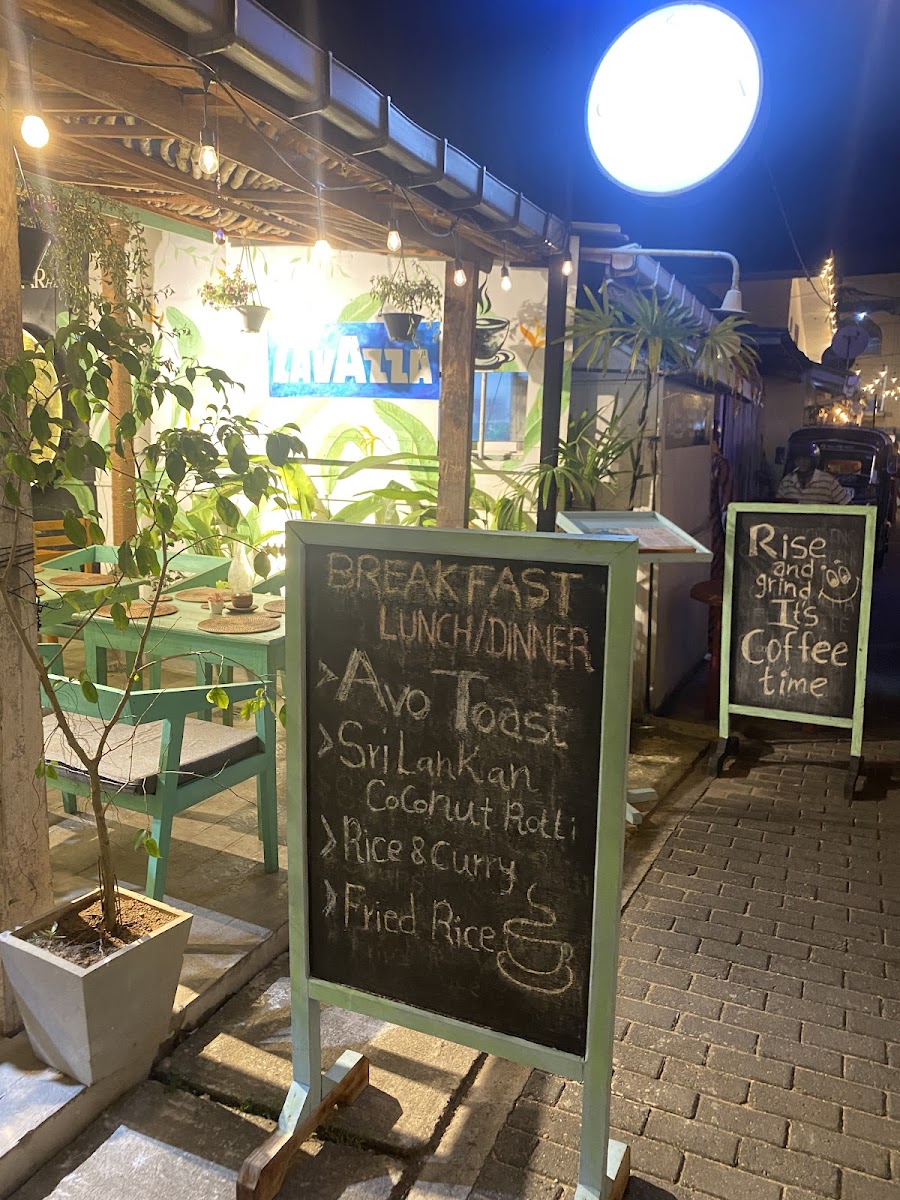 LAVAZZA
BREAKFAST
LUNCH/DINNER
> Avo Toast
> Sri Lankan
Coconut Rotti
> Rice & Curry
> Fried Rice
Rise
and
grind
It's
Coffee
time